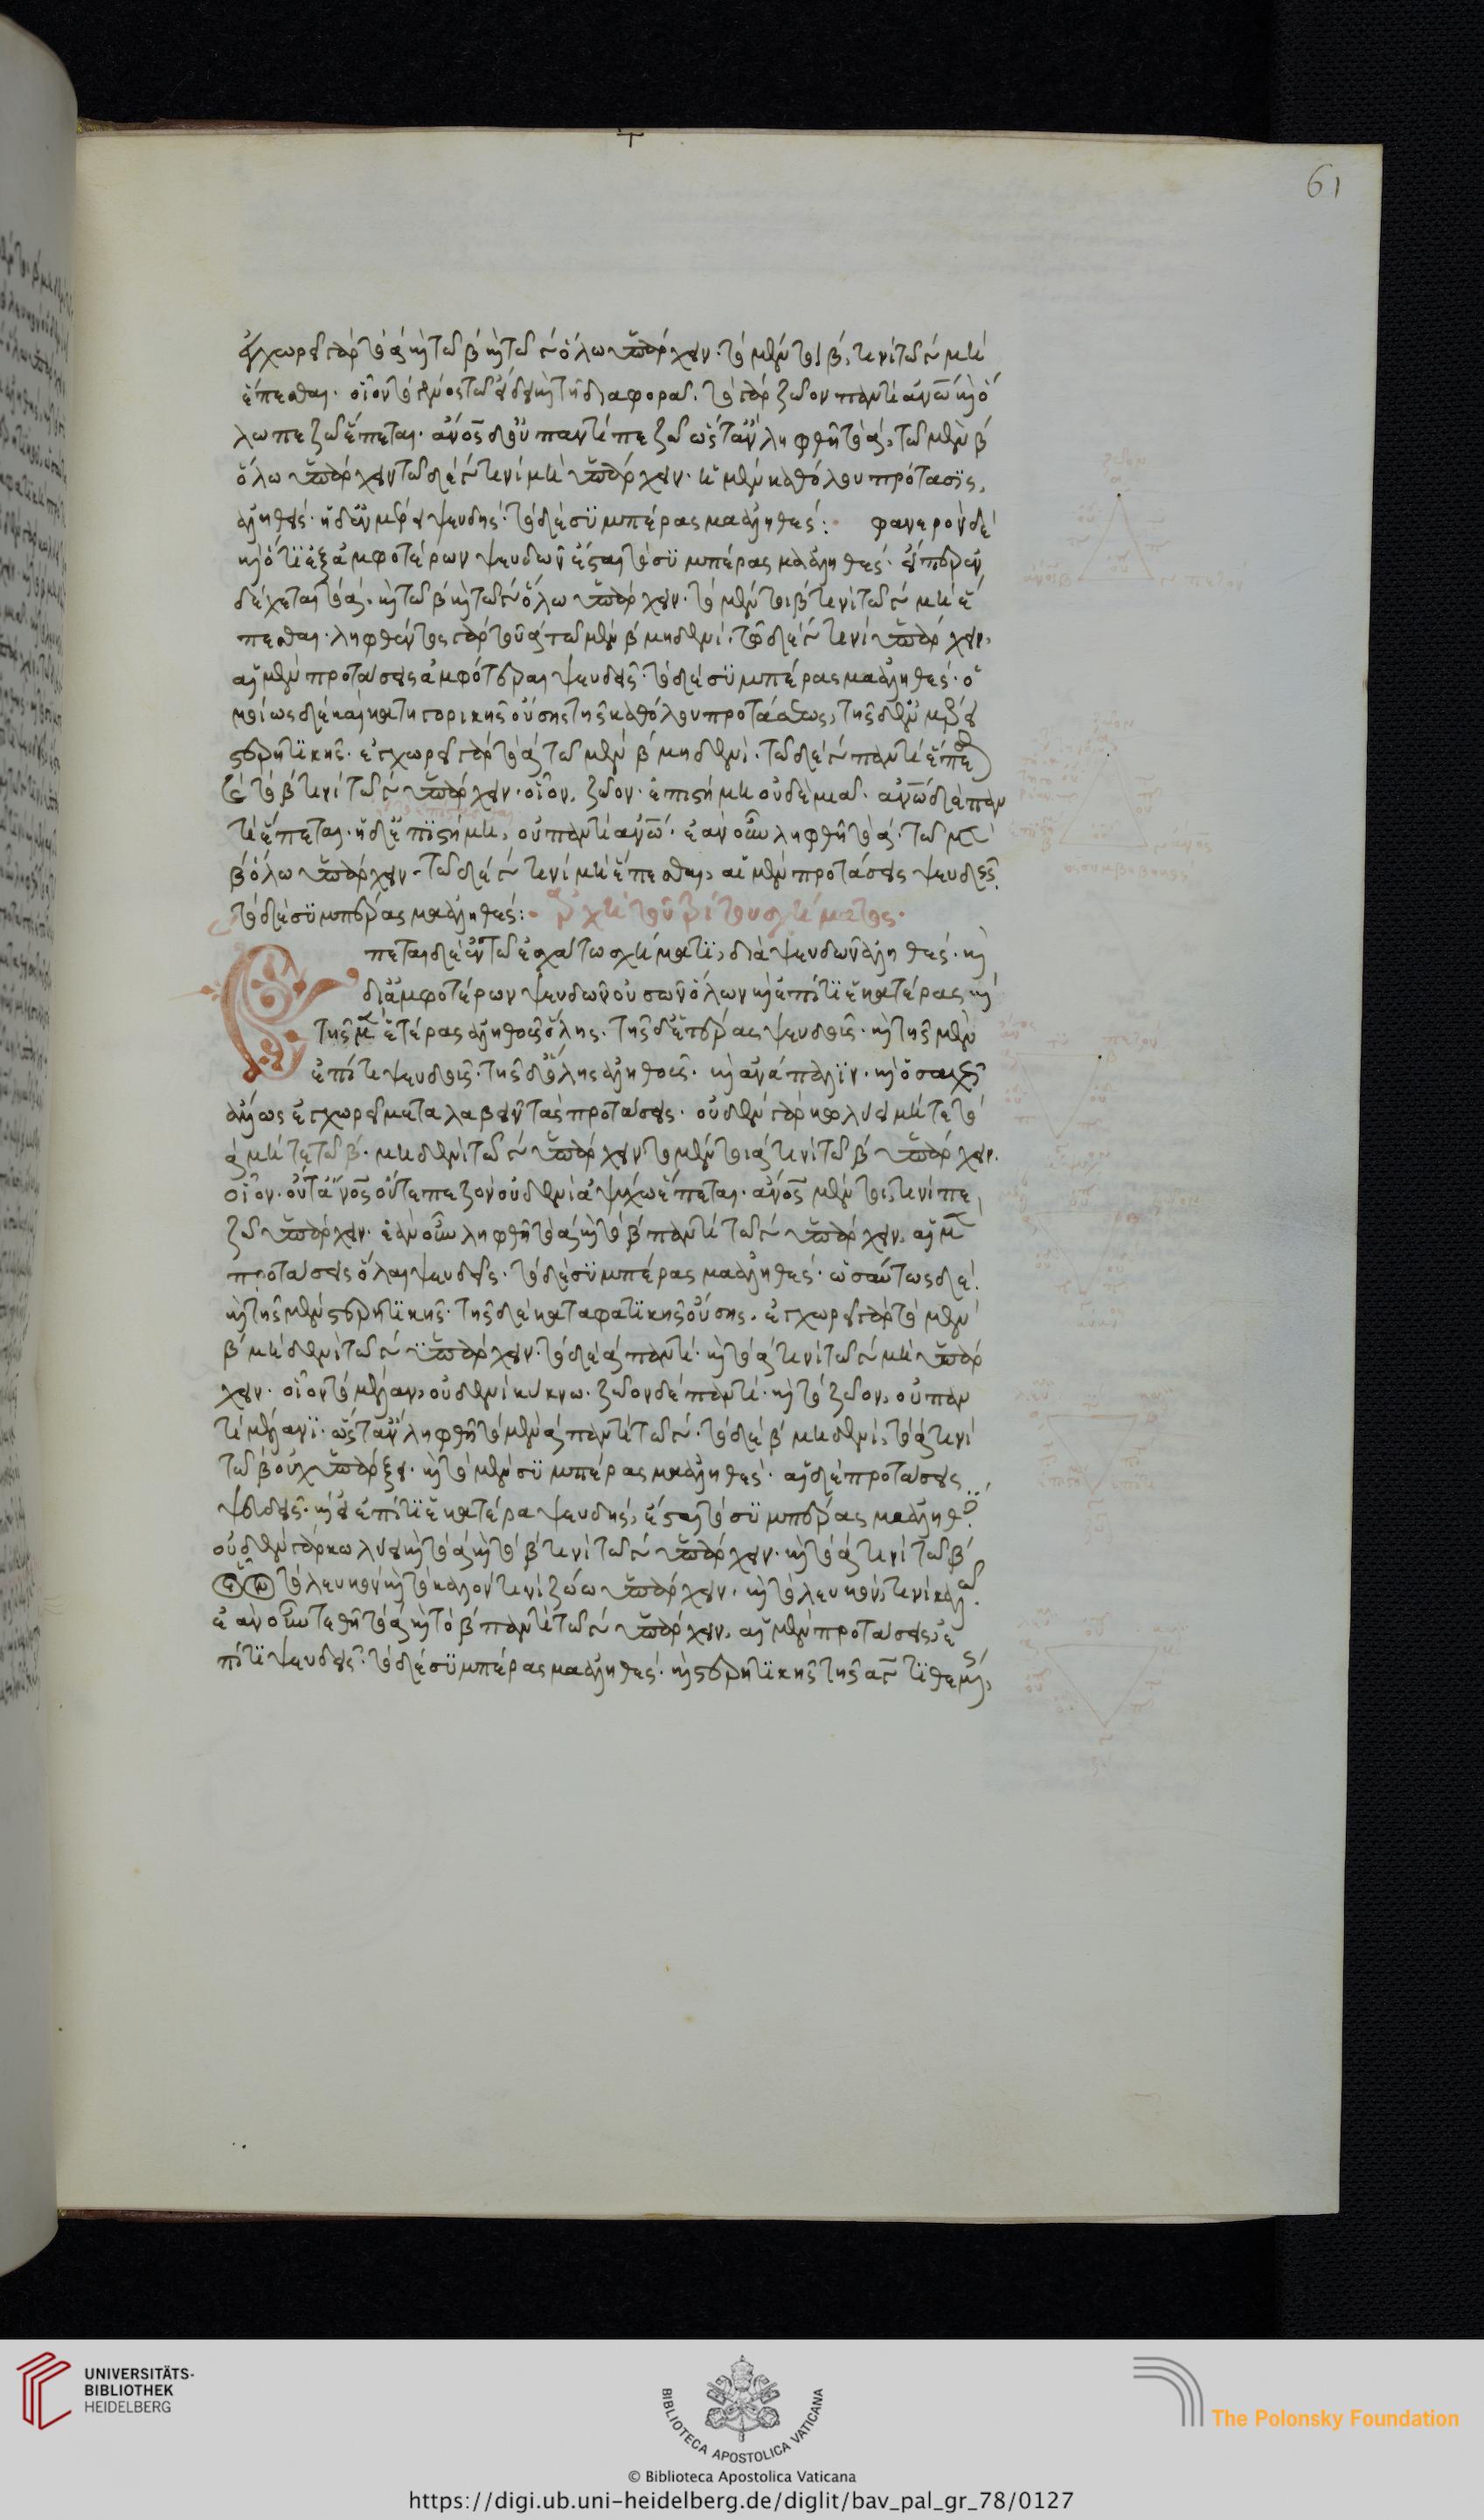 61
ἐγχωρεῖ γὰρ τὸ α καὶ τῶ β καὶ τῶ γ ὅλω ὑπάρχειν· τὸ μέντοι β, τινὶ τῶ γ μὴ
ἕπεσθαι· οἷον τὸ γένος τῶ εἴδει καὶ τῆ διαφορᾶ. τὸ γὰρ ζῶον παντὶ ἀνω καὶ ὅ
λω πεζῶ ἕπεται· ἄνος δ' οὐ παντὶ πεζῶ ὥστ' ἂν ληφθῆ τὸ α, τῶ μὲν β
ὅλω ὑπάρχειν τῶ δὲ γ τινὶ μὴ ὑπάρχειν· ἡ μὲν καθόλου πρότασις,
ἀληθής· ἡ δ' ἐν μέρει ψευδής· τὸ δὲ συμπέρασμα ἀληθές: φανερὸν δὲ
καὶ ὅτι ἐξ ἀμφοτέρων ψευδῶν ἔσται τὸ συμπέρασμα ἀληθές· εἴπερ ἐν
δέχεται τὸ α, καὶ τῶ β καὶ τῶ γ ὅλω ὑπάρχειν· τὸ μέντοι β τινὶ τῶ γ μὴ ἕ
πεσθαι· ληφθέντος γὰρ τοῦ α τῶ μὲν β μηδενί· τῶ δὲ γ τινὶ ὑπάρχειν,
αἱ μὲν προτάσεις ἀμφότεραι ψευδεῖς· τὸ δὲ συμπέρασμα ἀληθές· ὁ
μοίως δὲ καὶ κατηγορικῆς οὔσης τῆς καθόλου προτάσεως, τῆς δ' ἐν μέρει
στερητικῆς· ἐγχωρεῖ γὰρ τὸ α τῶ μὲν β μηδενί· τῶ δὲ γ παντὶ ἕπε
τὸ β τινὶ τῶ γ ὑπάρχειν· οἷον, ζῶον· ἐπιστήμη οὐδεμιᾶ. ἀνω δὲ παν
τὶ ἕπεται· ἡ δ' ἐπιστήμη, οὐ παντὶ ἀνω· ἐὰν οὖν ληφθῆ τὸ α· τῶ μὲν
β ὅλω ὑπάρχειν· τῶ δὲ γ τινὶ μὴ ἕπεσθαι, αἱ μὲν προτάσεις ψευδεῖς
τὸ δὲ συμπέρασμα ἀληθές: ἀρχὴ τοῦ τρίτου σχήματος·
πεται δὲ ἐν τῶ ἐσχάτω σχήματι, διὰ ψευδῶν ἀληθές· καὶ
δι' ἀμφοτέρων ψευδῶν οὐσῶν ὅλων καὶ ἐπί τι ἑκατέρας καὶ
τῆς μὲν ἑτέρας ἀληθοῦς ὅλης· τῆς δ' ἑτέρας ψευδοῦς· καὶ τῆς μὲν
ἐπί τι ψευδοῦς· τῆς δ' ὅλης ἀληθοῦς· καὶ ἀνάπαλιν· καὶ ὁσαχῶς
ἄλλως ἐγχωρεῖ μεταλαβεῖν τὰς προτάσεις· οὐδὲν γὰρ κωλύει μήτε τὸ
α μήτε τῶ β· μηδενὶ τῶ γ ὑπάρχειν τὸ μέντοι α τινὶ τῶ β ὑπάρχειν.
οἷον· οὔτ' ἄνος οὔτε πεζὸν οὐδενὶ ἀψύχω ἕπεται· ἄνος μέντοι, τινὶ πε
ζῶ ὑπάρχειν· ἐὰν οὖν ληφθῆ τὸ α καὶ τὸ β παντὶ τῶ γ ὑπάρχειν, αἱ μὲν
προτάσεις ὅλαι ψευδεῖς· τὸ δὲ συμπέρασμα ἀληθές· ὡσαύτως δὲ
καὶ τῆς μὲν στερητικῆς· τῆς δὲ καταφατικῆς οὔσης· ἐγχωρεῖ γὰρ τὸ μὲν
β μηδενὶ τῶ γ ὑπάρχειν· τὸ δὲ α παντί· καὶ τὸ α τινὶ τῶ γ μὴ ὑπάρ
χειν· οἷον τὸ μέλαν, οὐδενὶ κύκνω· ζῶον δὲ παντί· καὶ τὸ ζῶον, οὐ παν
τὶ μέλανι· ὥστ' ἂν ληφθῆ τὸ μὲν α παντὶ τῶ γ· τὸ δὲ β μηδενί, τὸ α τινὶ
τῶ β οὐχ ὑπάρξει· καὶ τὸ μὲν συμπέρασμα ἀληθές· αἱ δὲ προτάσεις
ψευδεῖς· καὶ εἰ ἐπί τι ἑκατέρα ψευδής, ἔσται τὸ συμπέρασμα ἀληθές
οὐδὲν γὰρ κωλύει καὶ τὸ α καὶ τὸ β τινὶ τῶ γ ὑπάρχειν· καὶ τὸ α τινὶ τῶ β
τὸ λευκὸν καὶ τὸ καλὸν τινὶ ζώω ὑπάρχειν, καὶ τὸ λευκὸν, τινὶ καλῶ
ἐὰν οὖν τεθῆ τὸ α καὶ τὸ β παντὶ τῶ γ ὑπάρχειν, αἱ μὲν προτάσεις, ἐ
πί τι ψευδεῖς· τὸ δὲ συμπέρασμα ἀληθές· καὶ στερητικῆς τῆς αγ τιθεμένης,
UNIVERSITÄTS-
BIBLIOTHEK
HEIDELBERG
BIBLIOTECA APOSTOLICA VATICANA
© Biblioteca Apostolica Vaticana
The Polonsky Foundation
https://digi.ub.uni-heidelberg.de/diglit/bav_pal_gr_78/0127